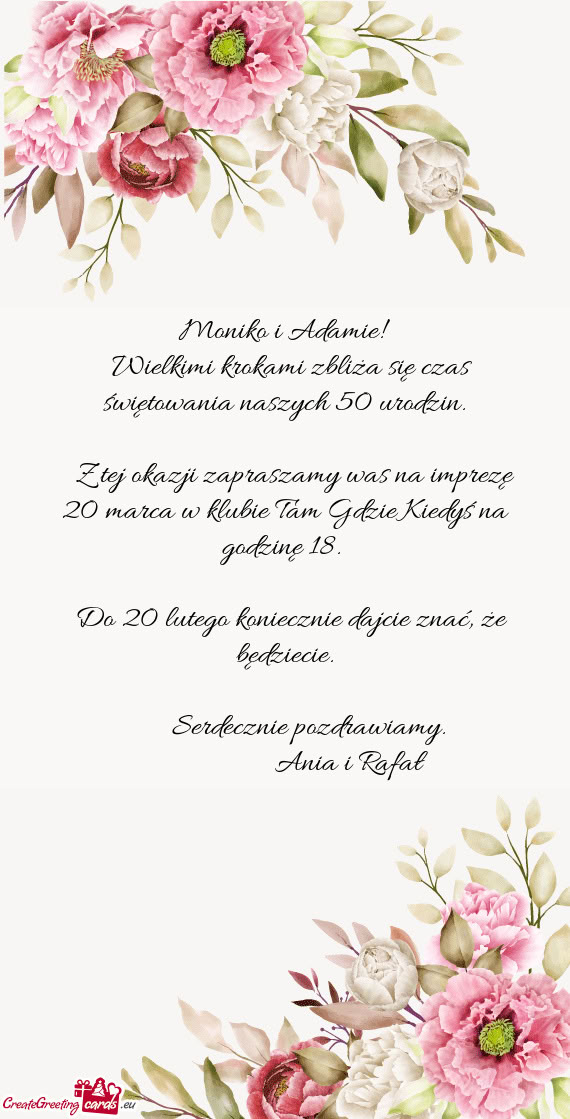 Moniko i Adamie!
Wielkimi krokami zbliża się czas
świętowania naszych 50 urodzin.
Z tej okazji zapraszamy was na imprezę
20 marca w klubie Tam Gdzie Kiedyś na
godzinę 18.
Do 20 lutego koniecznie dajcie znać, że
będziecie.
Serdecznie pozdrawiamy.
Ania i Rafał
CreateGreeting cards .eu